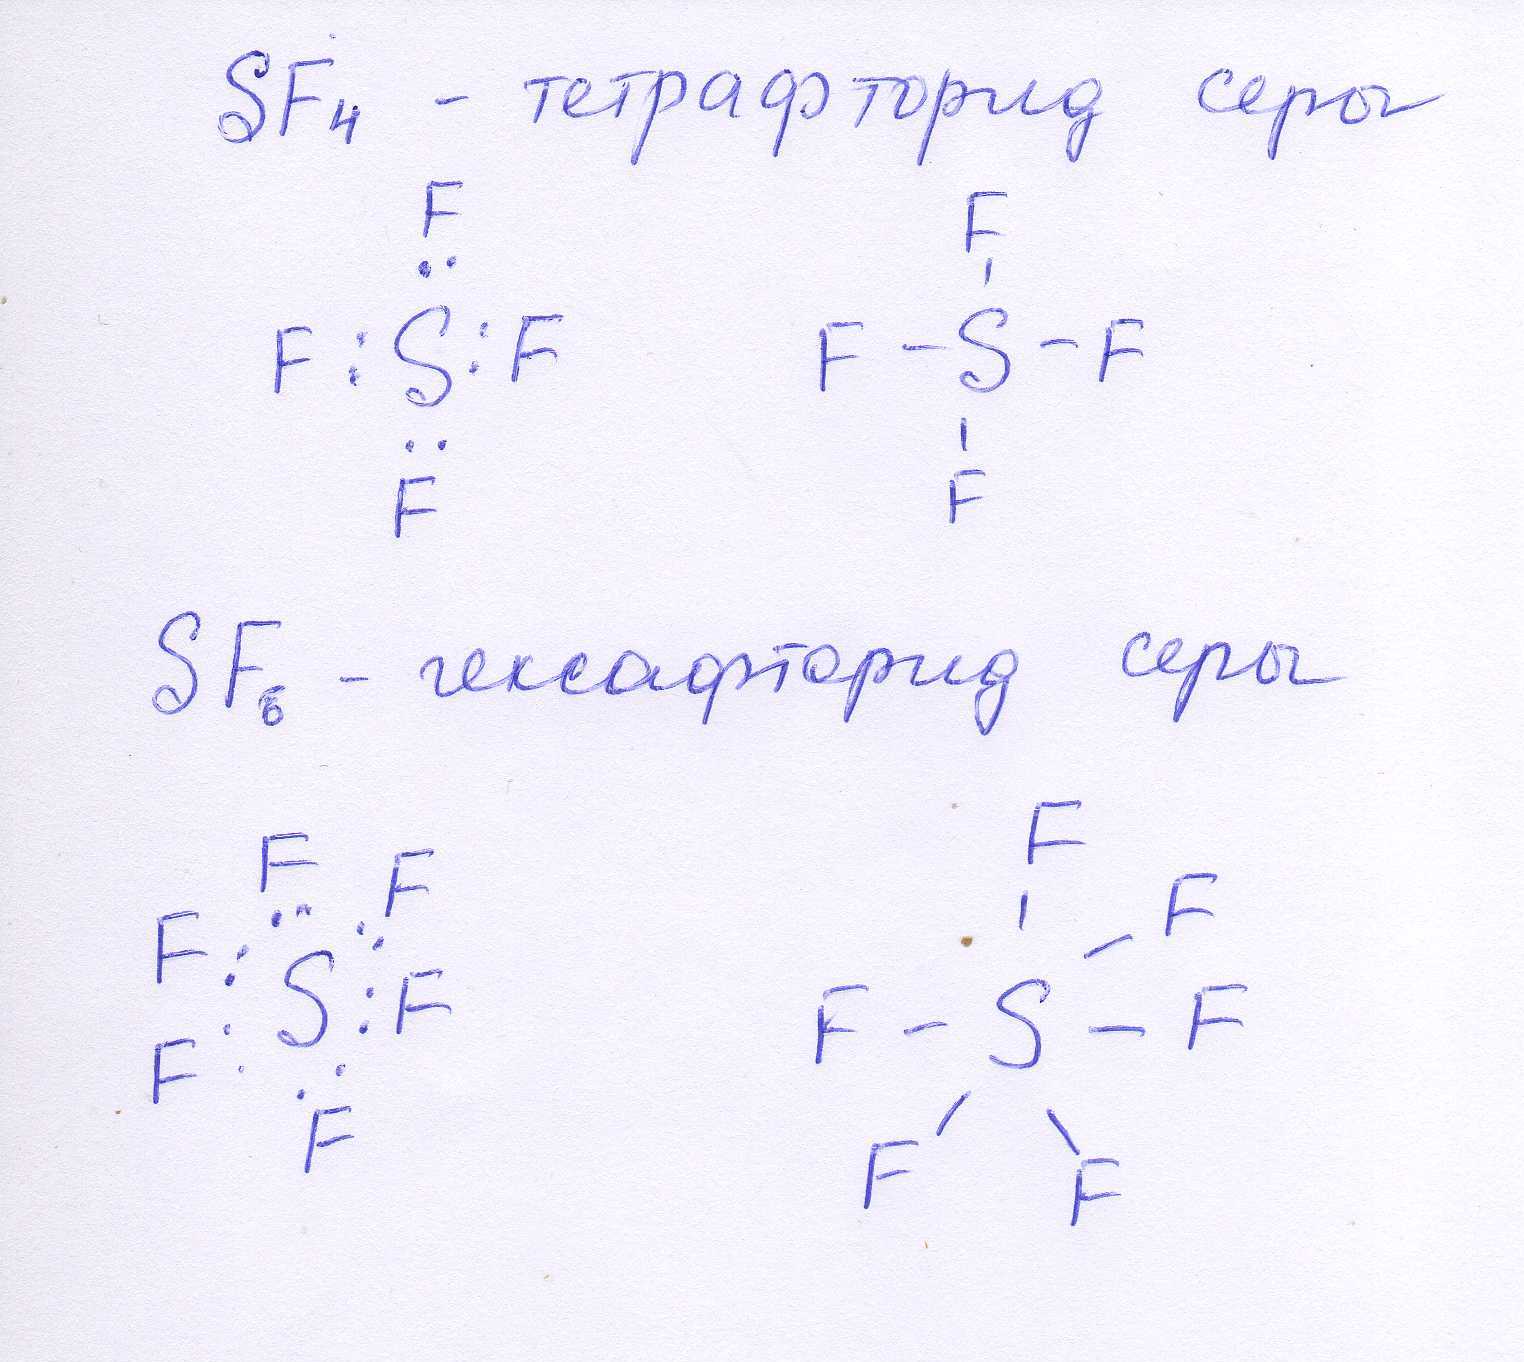 SF₄ - тетрафторид серы
F F
F : S : F F - S - F
F F
SF₆ - гексафторид серы
F F F F
F S F F - S - F
F F F F